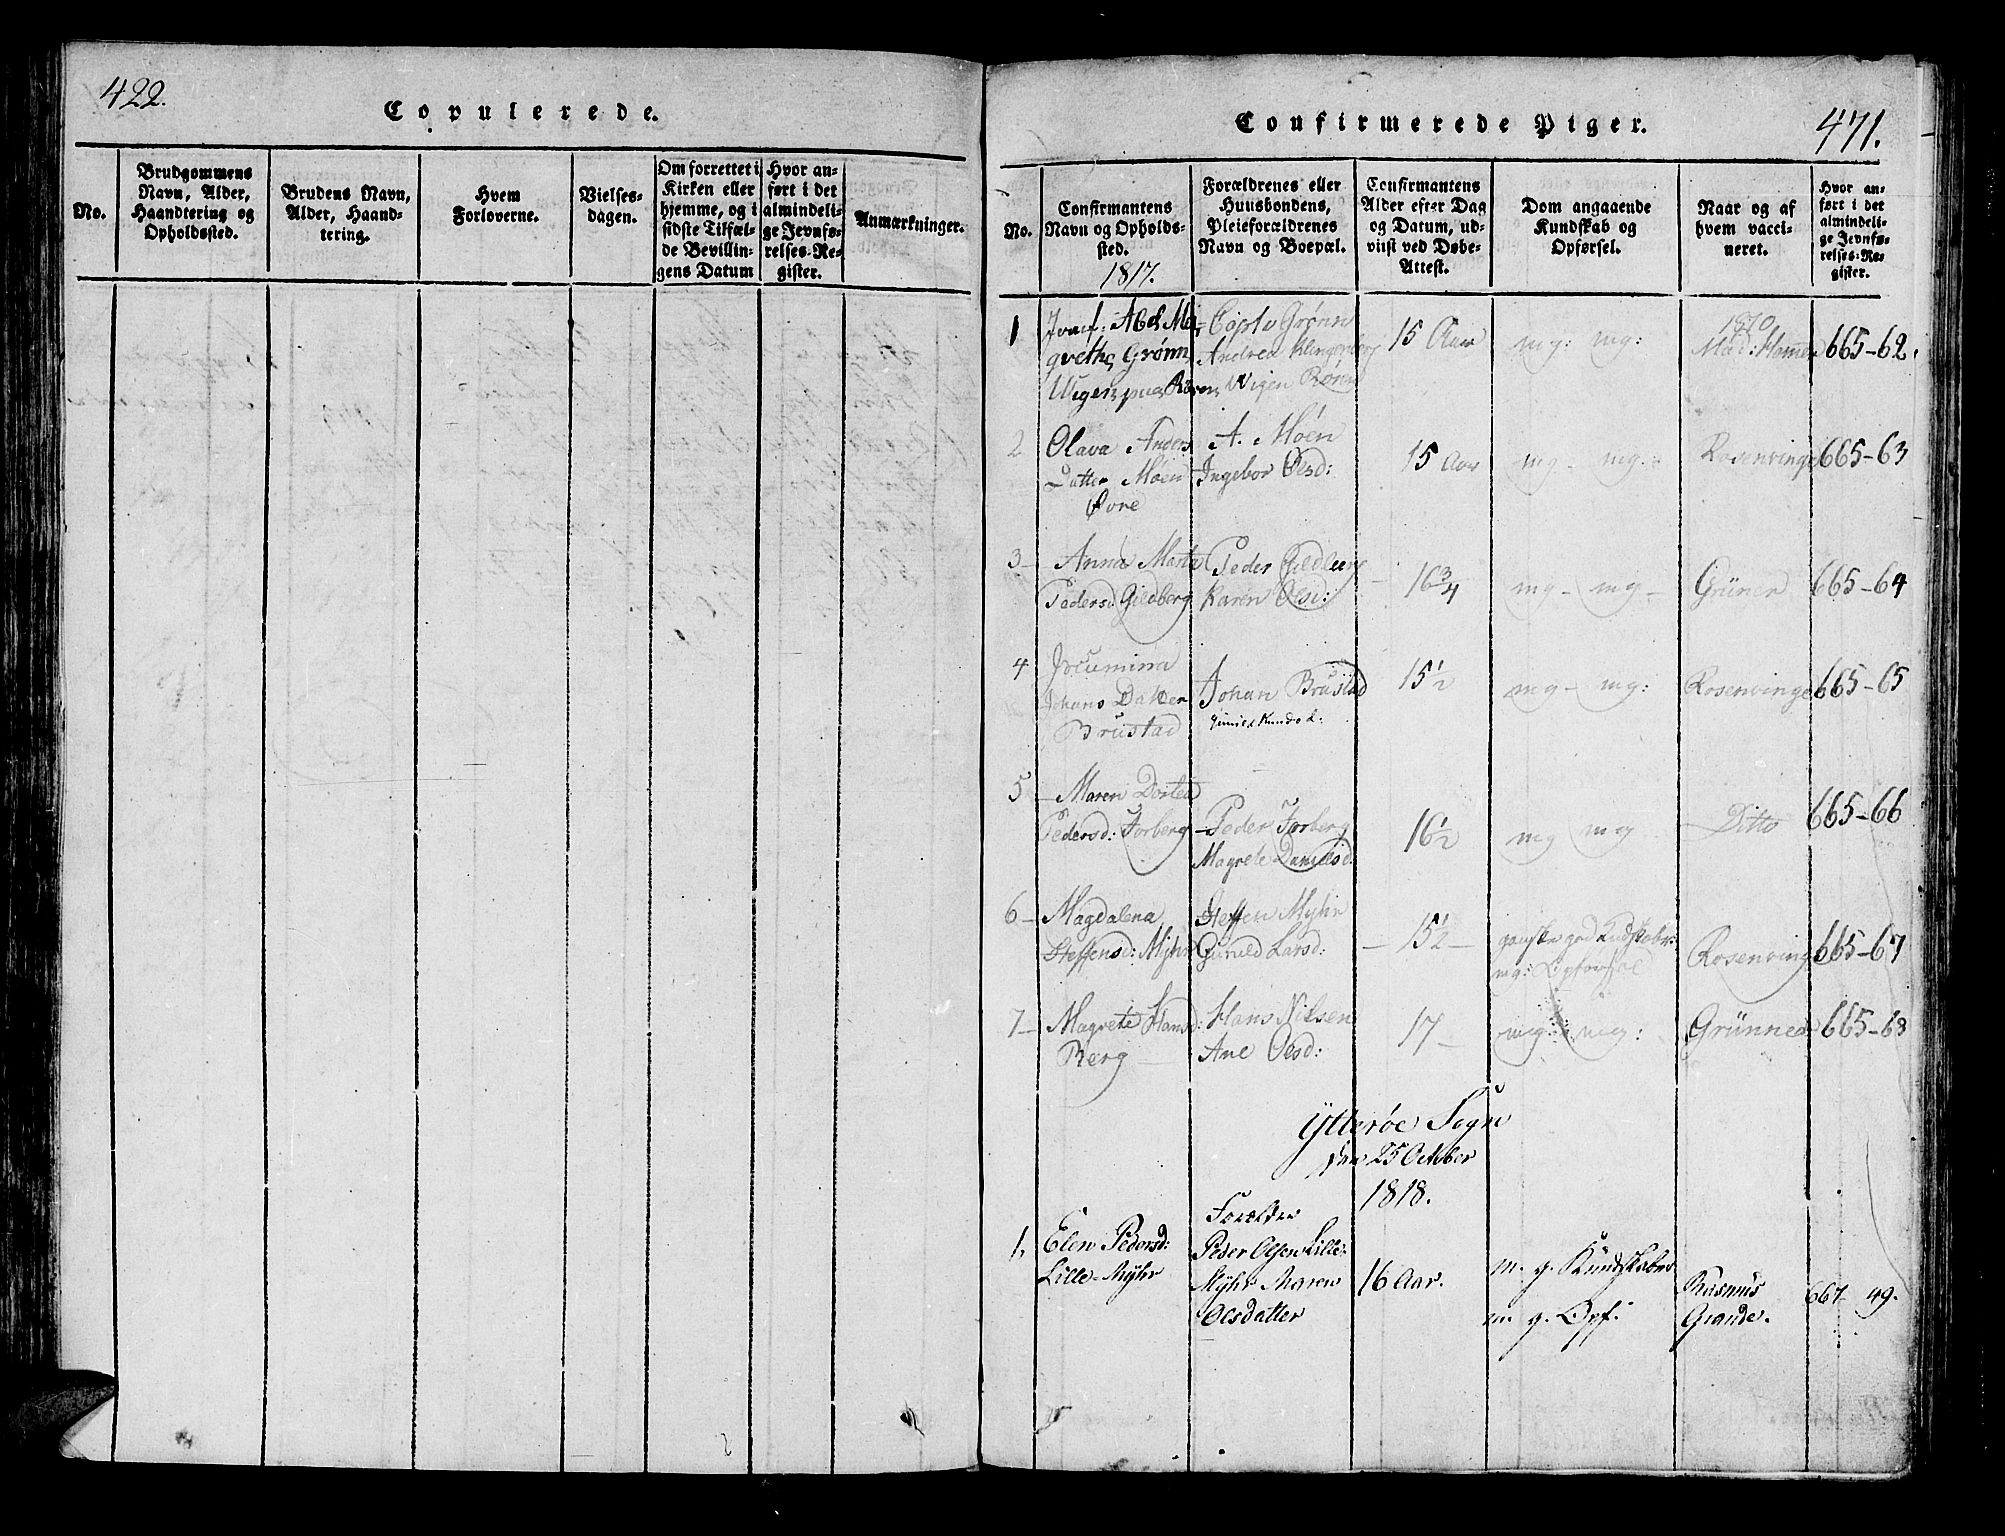 422.
Copulerede.
No.
Brudgommens
Navn, Alder,
Haandtering og
Opholdssted.
Brudens Navn,
Alder, Haand-
tering.
Hvem
Forloverne.
Vielses-
dagen.
Om forrettet i
Kirken eller
hjemme, og i
sidste Tilfæl-
de Bevillin-
gens Datum
Hvor an-
ført i det
almindeli-
ge Jevnfø-
relses-Re-
gister.
Anmærkninger.
Confirmerede Piger.
471.
No.
Confirmantens
Navn og Opholds-
sted.
1817.
Forældrenes eller
Huusbondens,
Pleieforældrenes
Navn og Boepæl.
Confirmantens
Alder efter Dag
og Datum, ud-
viist ved Døbe-
Attest.
Dom angaaende
Kundskab og
Opførsel.
Naar og af
hvem vacci-
neret.
Hvor an-
ført i det
almindeli-
ge Jevnfø-
relses-Re-
gister.
1 Jomf: Abel Ma-
grethe Grønn
Capt v Grønn
Andrea Klingenberg
Wigen Rønn
15 Aar
mg: mg:
1810
Mad: Hammer
665-62.
2 Olava Anders
Datter Møen
Øvre
A. Møen
Ingebor Olsd:
15 Aar
mg- mg-
Rosenvinge
665-63
3- Anna Marta
Pedersd Gildberg
Peder Gildberg
Karen Olsd:
16 3/4
mg- mg-
Grüner
665-64
4 Jocumina
Johans Datter
Brustad
Johan Brustad
15 1/2
mg- mg:
Rosenvinge
665-65
5 - Maren Dortea
Pedersd: Forberg
Peder Forberg
Magrete Danielsd:
16 1/2
mg mg
Ditto
665-66
6- Magdalena
Steffensd: Myhr
Steffen Myhr
Gunild Larsd:
- 15 1/2 -
ganske god Kundskaber
mg: Opførsel
Rosenvinge
665-67
7- Magrete Hansd:
Berg
Hans Nilsen
Ane Olsd:
17-
mg: mg:
Grünner
665-68
Ytterøe Sogn
den 25 October
1818.
Forælder
1, Elen Pedersd:
Lille-Myhr
Peder Olsen Lille-
Myhr Maren
Olsdatter
16 Aar.
m. g. Kundskaber
m. g. Opf:
Rasmus
Grande.
667 49.